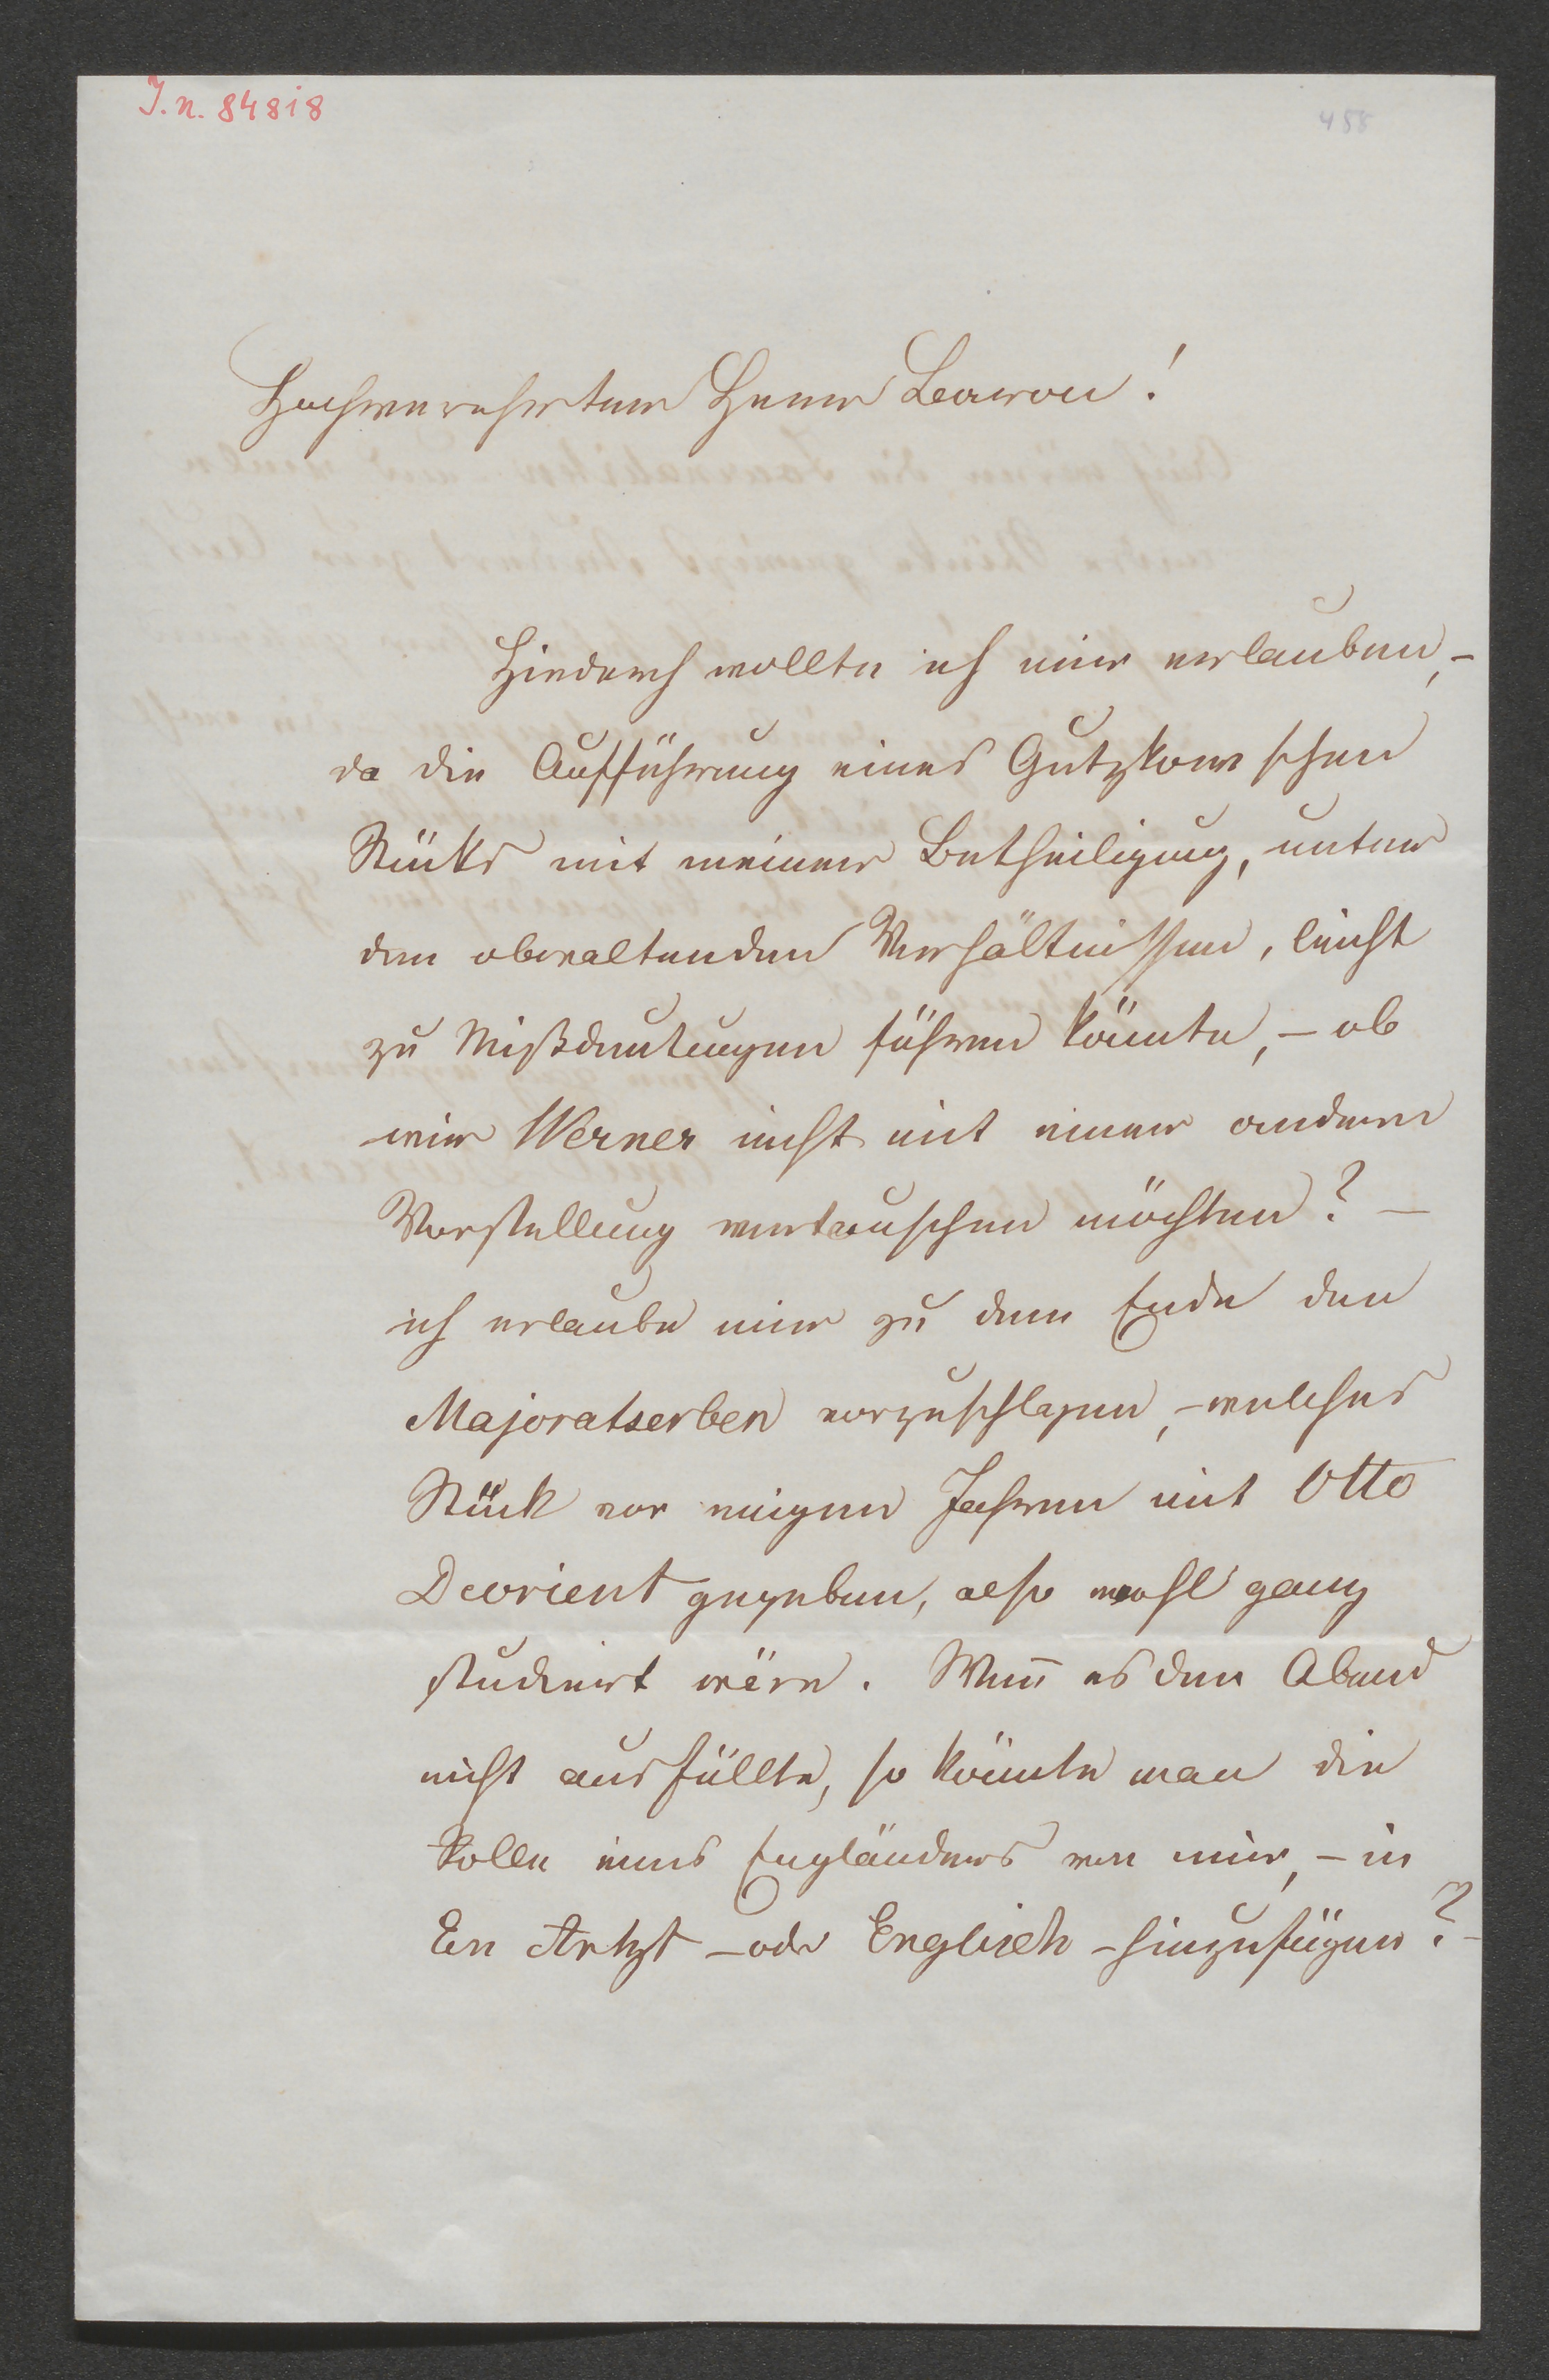 J.n. 84818
458
Hochverehrter Herr Baron!
Hiedurch wollte ich mir erlauben, –
da die Aufführung eines Gutzkow'schen
Stücks mit meiner Betheiligung, unter
den obwaltenden Verhältnissen, leicht
zu Mißdeutungen führen könnte, – ob
wir Werner nicht mit einer andern
Vorstellung vertauschen möchten? –
ich erlaube mir zu dem Ende den
Majoratserben vorzuschlagen, – welches
Stück vor einigen Jahren mit Otto
Devrient gegeben, also wohl ganz
studiert wäre. Wenn es den Abend
nicht ausfüllte, so könnte man die
Rolle eines Engländers von mir, – in
Ein Artzt – oder Englisch – hinzufügen? –